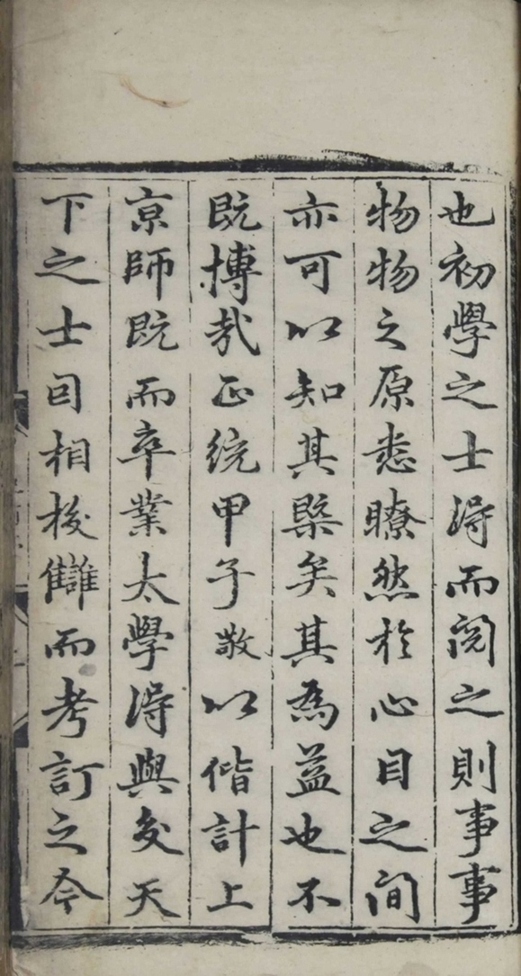 也初學之士淂而閱之則事事
物物之原悉瞭然於心目之间
亦可以知其槩矣其為益也不
既博㢤正統甲子敬以偕計上
亰師既而卒業太學淂與交天
下之士因相校讎而考訂之今